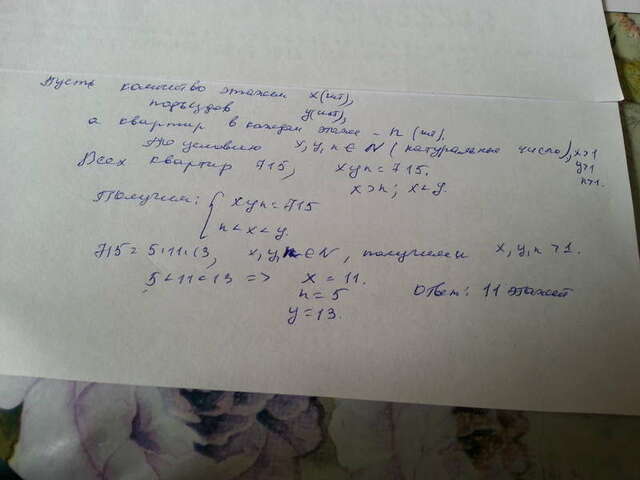 Пусть количество этажей x(шт),
подъездов y(шт),
а квартир в каждом этаже - n (шт).
По условию x, y, n ∈ N (натуральные число), x>1
y>1
n>1.
Всех квартир 715, xyn = 715.
x > n; x < y.
Получим: { xyn = 715
n < x < y.
715 = 5·11·13, x, y, n ∈ N, получим и x, y, n > 1.
5 < 11 < 13 => x = 11.
n = 5
y = 13.
Ответ: 11 этажей